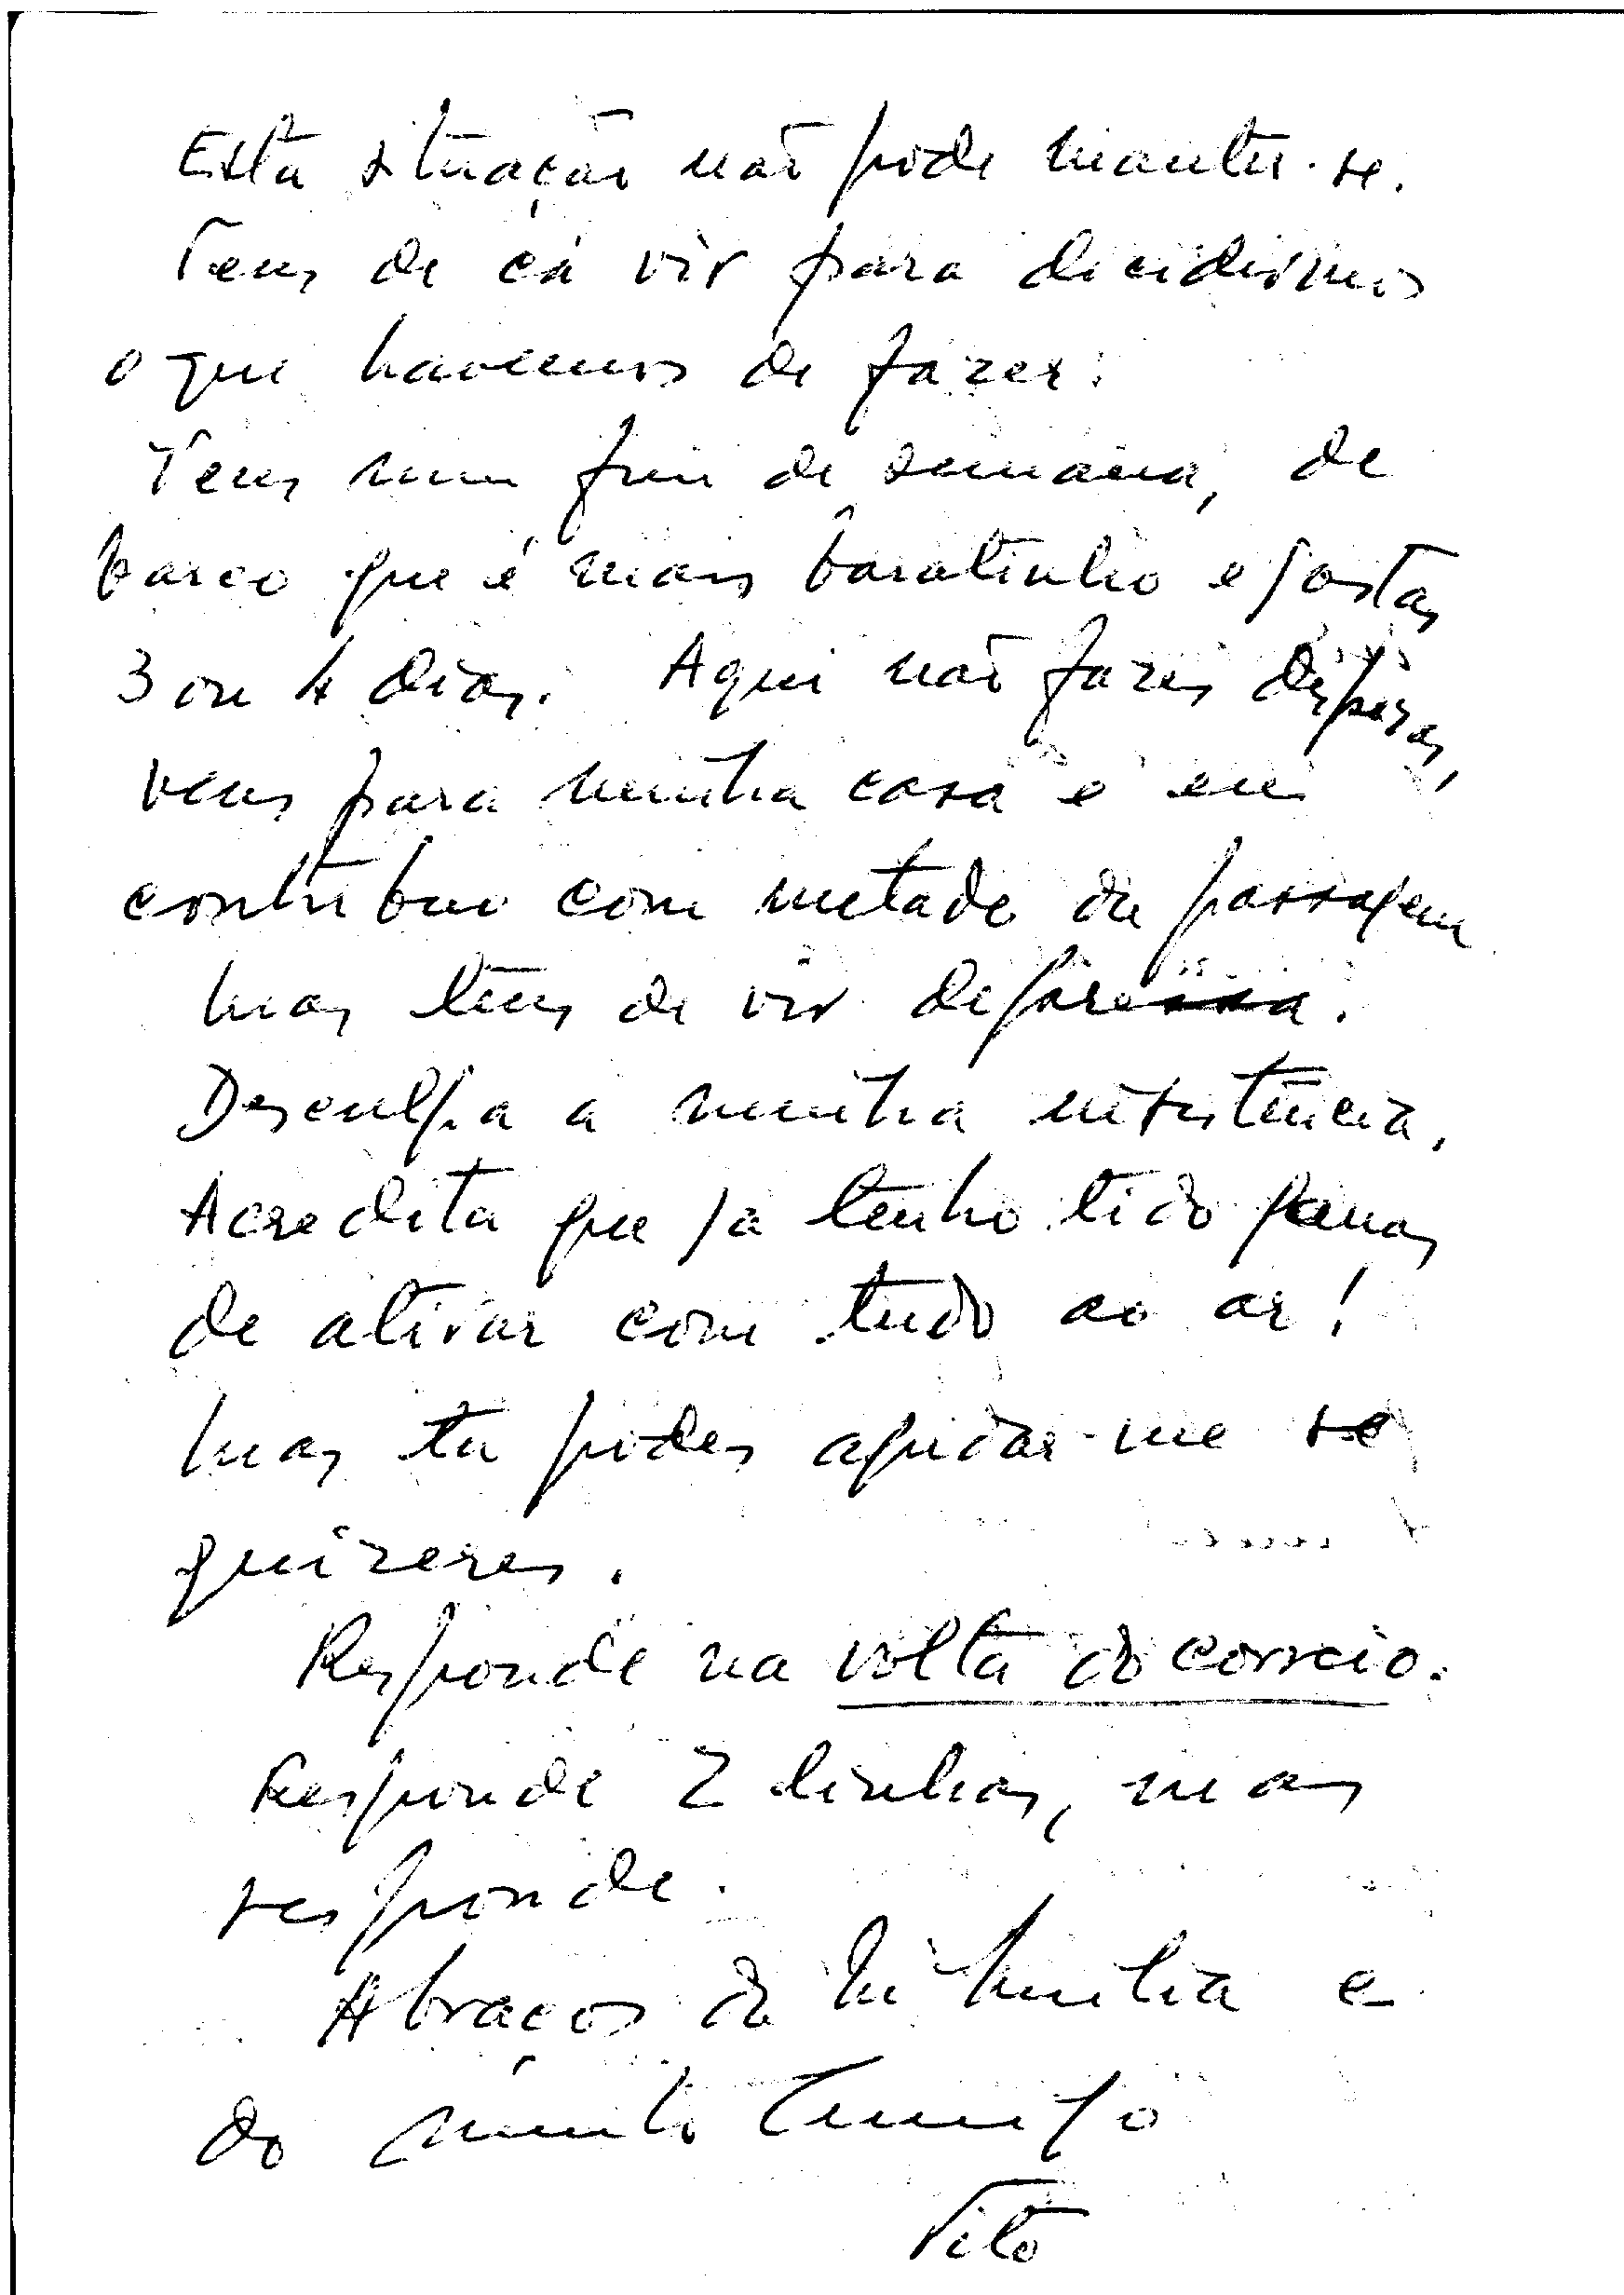 Esta situação não pode manter-se.
Tens de cá vir para decidirmos
o que havemos de fazer.
Vens num fim de semana, de
barco que é mais baratinho e gastas
3 ou 4 dias. Aqui não fazes despesas,
vens para minha casa e eu
contribuo com metade da passagem
mas tens de vir depressa.
Desculpa a minha insistência.
Acredita que já tenho tido ganas
de atirar com tudo ao ar!
Mas tu podes ajudar-me se
quizeres.
Responde na volta do correio.
Responde 2 linhas, mas
responde.
Abraços da e
do muito amigo